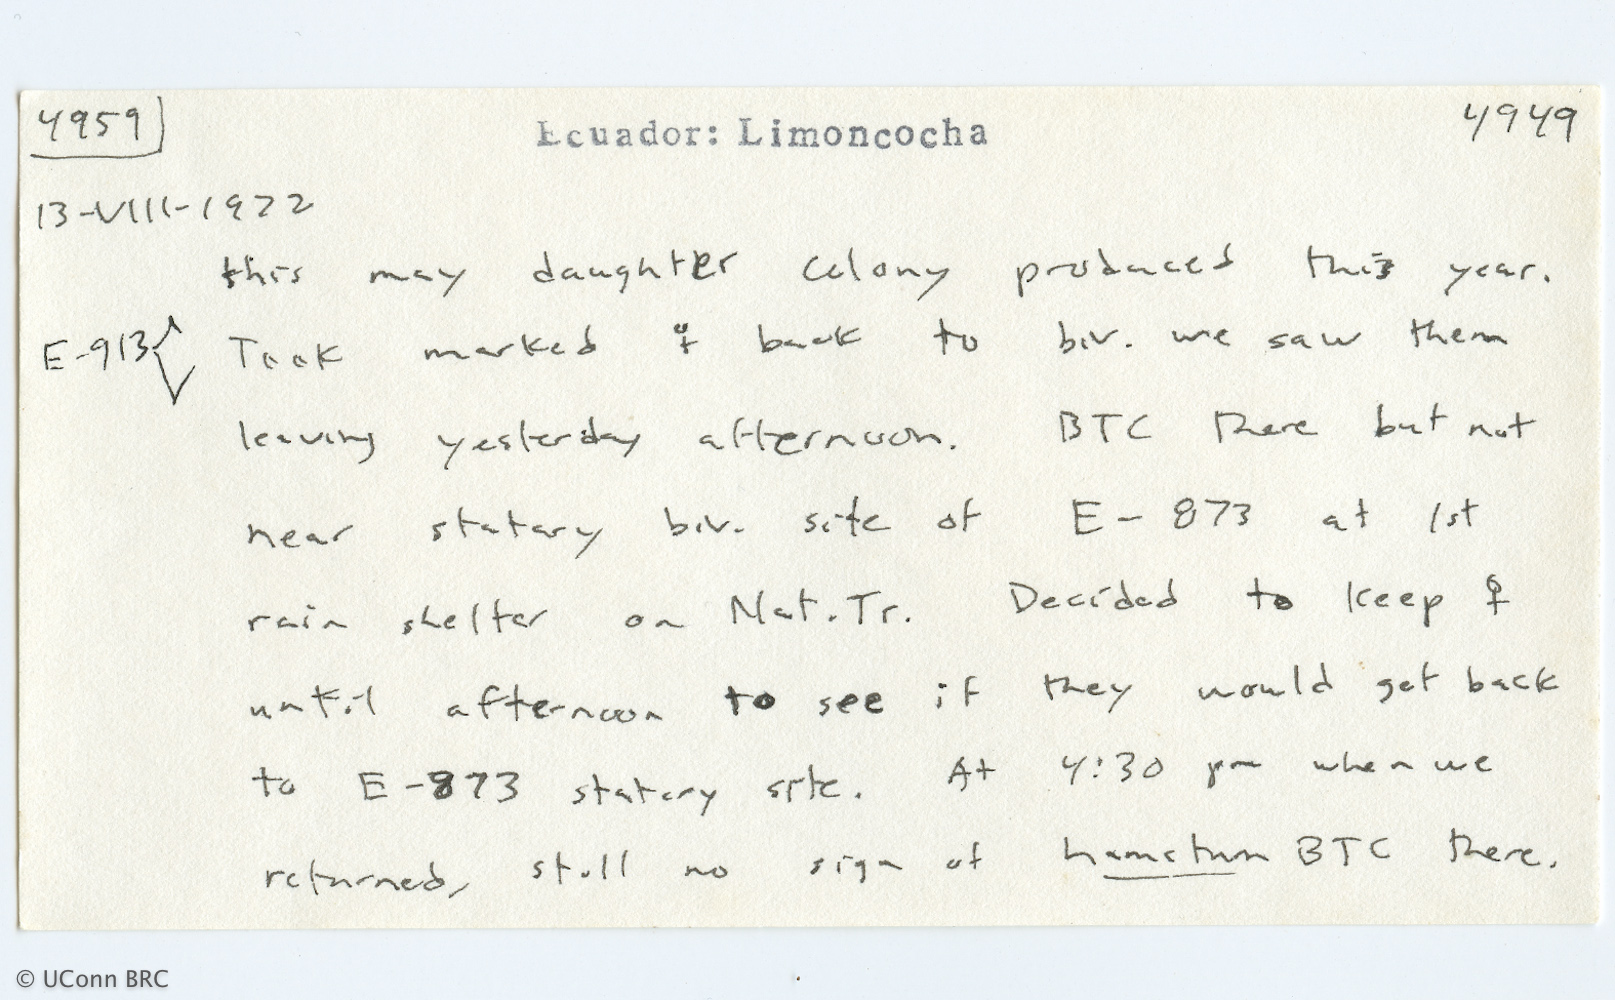 4959 Ecuador: Limoncocha 4949
13-VIII-1972
this may daughter colony produced this year.
E-913 Took marked ♀ back to biv. we saw them
leaving yesterday afternoon. BTC there but not
near statary biv. site of E-873 at 1st
rain shelter on Nat. Tr. Decided to keep ♀
until afternoon to see if they would get back
to E-873 statary site. At 4:30 pm when we
returned, still no sign of hamatum BTC there.
© UConn BRC